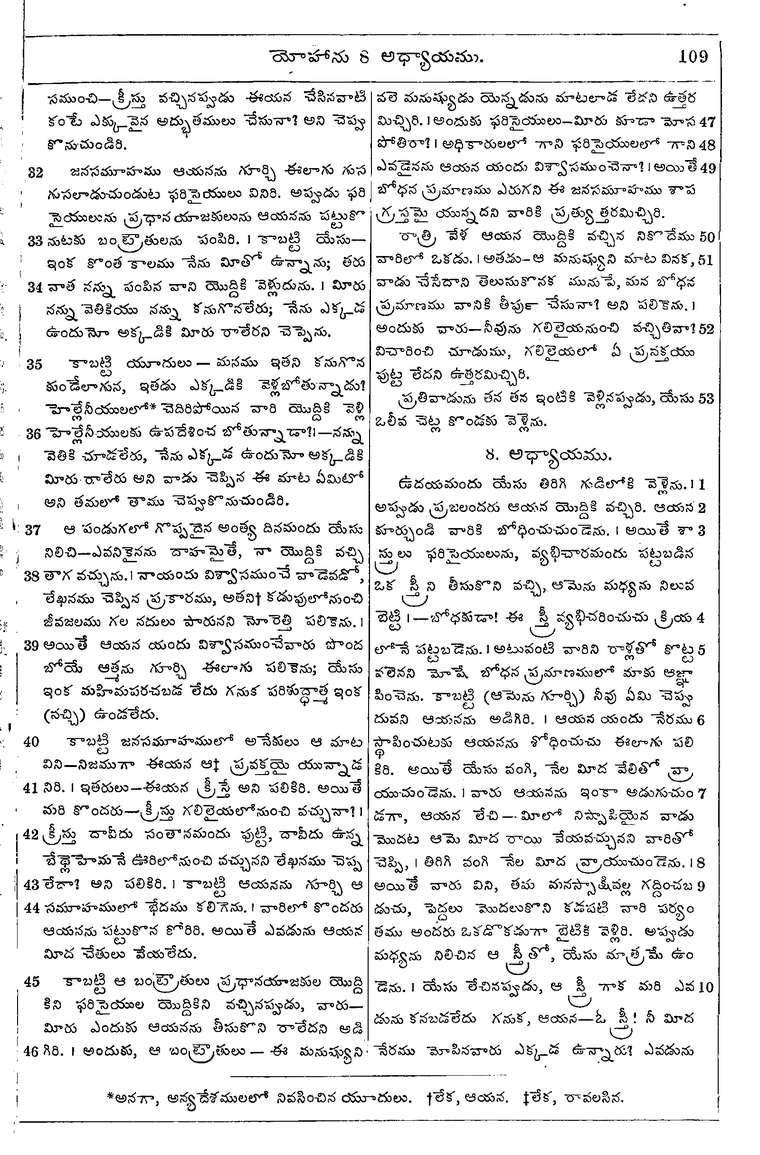 యోహాను 8 అధ్యాయము. 109
సముంచి—క్రీస్తు వచ్చినప్పుడు ఈయన చేసినవాటి
కంటే ఎక్కువైన అద్భుతములు చేసునా? అని చెప్పు
కొనుచుండిరి.
32 జనసమూహము ఆయనను గూర్చి ఈలాగు గుస
గుసలాడుచుండుట ఫరిసైయులు వినిరి. అప్పుడు ఫరి
సైయులును ప్రధానయాజకులును ఆయనను పట్టుకొ
33 నుటకు బంట్రౌతులను పంపిరి. । కాబట్టి యేసు—
ఇంక కొంత కాలము నేను మీతో ఉన్నాను; తరు
34 వాత నన్ను పంపిన వాని యొద్దికి వెళ్లుదును. । మీరు
నన్ను వెతికియు నన్ను కనుగొనలేరు; నేను ఎక్కడ
ఉందునో అక్కడికి మీరు రాలేరని చెప్పెను.
35 కాబట్టి యూదులు — మనము ఇతని కనుగొన
కుండేలాగున, ఇతడు ఎక్కడికి వెళ్లబోతున్నాడు?
హెల్లేనీయులలో* చెదిరిపోయిన వారి యొద్దికి వెళ్లి
36 హెల్లేనీయులకు ఉపదేశించ బోతున్నాడా?।—నన్ను
వెతికి చూడలేరు, నేను ఎక్కడ ఉందునో అక్కడికి
మీరు రాలేరు అని వాడు చెప్పిన ఈ మాట ఏమిటో
అని తమలో తాము చెప్పుకొనుచుండిరి.
37 ఆ పండుగలో గొప్పదైన అంత్య దినమందు యేసు
నిలిచి—ఎవనికైనను దాహమైతే, నా యొద్దికి వచ్చి
38 తాగ వచ్చును. । నాయందు విశ్వాసముంచే వాడెవడో,
లేఖనము చెప్పిన ప్రకారము, అతని† కడుపులోనుంచి
జీవజలము గల నదులు పారునని మొరెత్తి పలికెను. ।
39 అయితే ఆయన యందు విశ్వాసముంచేవారు పొంద
బోయే ఆత్మను గూర్చి ఈలాగు పలికెను; యేసు
ఇంక మహిమపరచబడ లేదు గనుక పరిశుద్ధాత్మ ఇంక
(నచ్చి) ఉండలేదు.
40 కాబట్టి జనసమూహములో అనేకులు ఆ మాట
విని—నిజముగా ఈయన ఆ‡ ప్రవక్తయై యున్నాడ
41 నిరి. । ఇతరులు—ఈయన క్రీస్తే అని పలికిరి. అయితే
మరి కొందరు—క్రీస్తు గలిలైయలోనుంచి వచ్చునా?।
42 క్రీస్తు దావీదు సంతానమందు పుట్టి, దావీదు ఉన్న
బేత్లెహేమనే ఊరిలోనుంచి వచ్చునని లేఖనము చెప్ప
43 లేదా? అని పలికిరి. । కాబట్టి ఆయనను గూర్చి ఆ
44 సమూహములో భేదము కలిగెను. । వారిలో కొందరు
ఆయనను పట్టుకొన కోరిరి. అయితే ఎవడును ఆయన
మీద చేతులు వేయలేదు.
45 కాబట్టి ఆ బంట్రౌతులు ప్రధానయాజకుల యొద్ది
కిని ఫరిసైయుల యొద్దికిని వచ్చినప్పుడు, వారు—
మీరు ఎందుకు ఆయనను తీసుకొని రాలేదని అడి
46 గిరి. । అందుకు, ఆ బంట్రౌతులు — ఈ మనుష్యుని
వలె మనుష్యుడు యెన్నడును మాటలాడ లేదని ఉత్తర
మిచ్చిరి. । అందుకు ఫరిసైయులు—మీరు కూడా మోస 47
పోతిరా?। అధికారులలో గాని ఫరిసైయులలో గాని 48
ఎవడైనను ఆయన యందు విశ్వాసముంచెనా?। అయితే 49
బోధన ప్రమాణము ఎరుగని ఈ జనసమూహము శాప
గ్రస్తమై యున్నదని వారికి ప్రత్యుత్తరమిచ్చిరి.
రాత్రి వేళ ఆయన యొద్దికి వచ్చిన నికొదేము 50
వారిలో ఒకడు. । అతడు—ఆ మనుష్యుని మాట వినక, 51
వాడు చేసేదాని తెలుసుకొనక మునుపే, మన బోధన
ప్రమాణము వానికి తీర్పు చేసునా? అని పలికెను. ।
అందుకు వారు—నీవును గలిలైయనుంచి వచ్చితివా? 52
విచారించి చూడుము, గలిలైయలో ఏ ప్రవక్తయు
పుట్ట లేదని ఉత్తరమిచ్చిరి.
ప్రతివాడును తన తన ఇంటికి వెళ్లినప్పుడు, యేసు 53
ఒలీవ చెట్ల కొండకు వెళ్లెను.
8. అధ్యాయము.
ఉదయమందు యేసు తిరిగి గుడిలోకి వెళ్లెను. । 1
అప్పుడు ప్రజలందరు ఆయన యొద్దికి వచ్చిరి. ఆయన 2
కూర్చుండి వారికి బోధించుచుండెను. । అయితే శా 3
స్త్రులు ఫరిసైయులును, వ్యభిచారమందు పట్టబడిన
ఒక స్త్రీని తీసుకొని వచ్చి, ఆమెను మధ్యను నిలువ
బెట్టి । —బోధకుడా! ఈ స్త్రీ వ్యభిచరించుచు క్రియ 4
లోనే పట్టబడెను. । అటువంటి వారిని రాళ్లతో కొట్ట 5
వలెనని మోషే బోధన ప్రమాణములో మాకు ఆజ్ఞా
పించెను. కాబట్టి (ఆమెను గూర్చి) నీవు ఏమి చెప్పు
దువని ఆయనను అడిగిరి. । ఆయన యందు నేరము 6
స్థాపించుటకు ఆయనను శోధించుచు ఈలాగు పలి
కిరి. అయితే యేసు వంగి, నేల మీద వేలితో వ్రా
యుచుండెను. । వారు ఆయనను ఇంకా అడుగుచుం 7
డగా, ఆయన లేచి—మీలో నిష్పాపియైన వాడు
మొదట ఆమె మీద రాయి వేయవచ్చునని వారితో
చెప్పి, । తిరిగి వంగి నేల మీద వ్రాయుచుండెను. । 8
అయితే వారు విని, తమ మనస్సాక్షివల్ల గద్దించబ 9
డుచు, పెద్దలు మొదలుకొని కడపటి వారి పర్యం
తము అందరు ఒకడొకడుగా బైటికి వెళ్లిరి. అప్పుడు
మధ్యను నిలిచిన ఆ స్త్రీతో, యేసు మాత్రమే ఉం
డెను. । యేసు లేచినప్పుడు, ఆ స్త్రీ గాక మరి ఎవ 10
డును కనబడలేదు గనుక, ఆయన—ఓ స్త్రీ! నీ మీద
నేరము మోపినవారు ఎక్కడ ఉన్నారు? ఎవడును
*అనగా, అన్యదేశములలో నివసించిన యూదులు. †లేక, ఆయన. ‡లేక, రావలసిన.